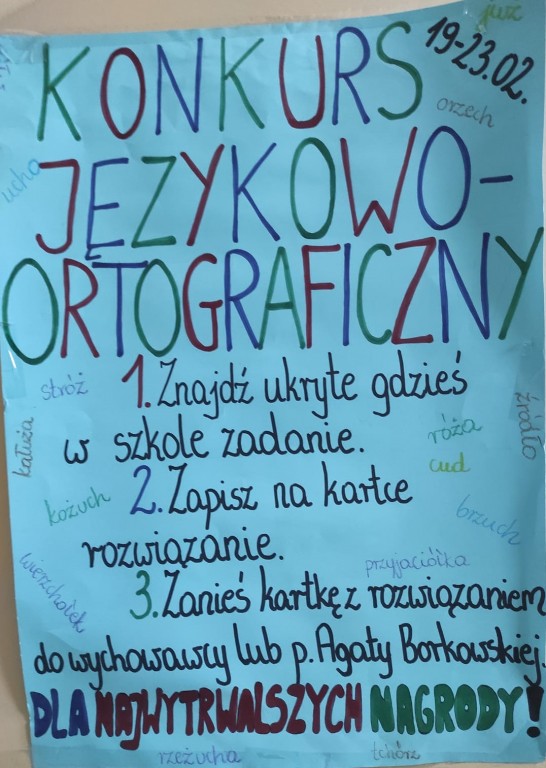 już
19-23.02.
KONKURS
orzech
ucho
JĘZYKOWO-
ORTOGRAFICZNY
stróż
1. Znajdź ukryte gdzieś
źródło
kałuża
w szkole zadanie.
róża
cud
2. Zapisz na kartce
kożuch
brzuch
rozwiązanie.
przyjaciółka
wierzchołek
3. Zanieś kartkę z rozwiązaniem
do wychowawcy lub p. Agaty Borkowskiej.
DLA NAJWYTRWALSZYCH NAGRODY!
rzeżucha
tchórz